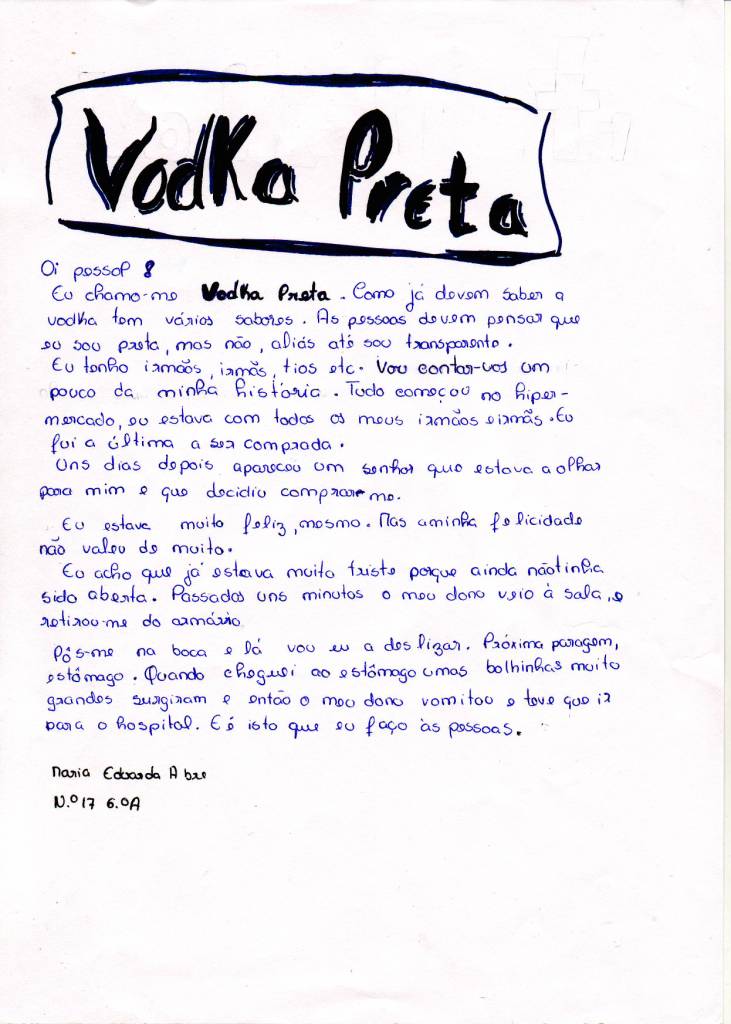 Vodka Preta
Oi pessol!
Eu chamo-me Vodka Preta. Como já devem saber a
vodka tem vários sabores. As pessoas devem pensar que
eu sou preta, mas não, aliás até sou transparente.
Eu tenho irmãos, irmãs, tios etc. Vou contar-vos um
pouco da minha história. Tudo começou no hiper-
mercado, eu estava com todos os meus irmãos e irmãs. Eu
fui a última a ser comprada.
Uns dias depois apareceu um senhor que estava a olhar
para mim e que decidiu comprar-me.
Eu estava muito feliz, mesmo. Mas a minha felicidade
não valeu de muito.
Eu acho que já estava muito triste porque ainda não tinha
sido aberta. Passados uns minutos o meu dono veio à sala, e
retirou-me do armário
Pôs-me na boca e lá vou eu a deslizar. Próxima paragem,
estômago. Quando cheguei ao estômago umas bolhinhas muito
grandes surgiram e então o meu dono vomitou e teve que ir
para o hospital. E é isto que eu faço às pessoas.
Maria Eduarda Abre
N.º 17 6.ºA